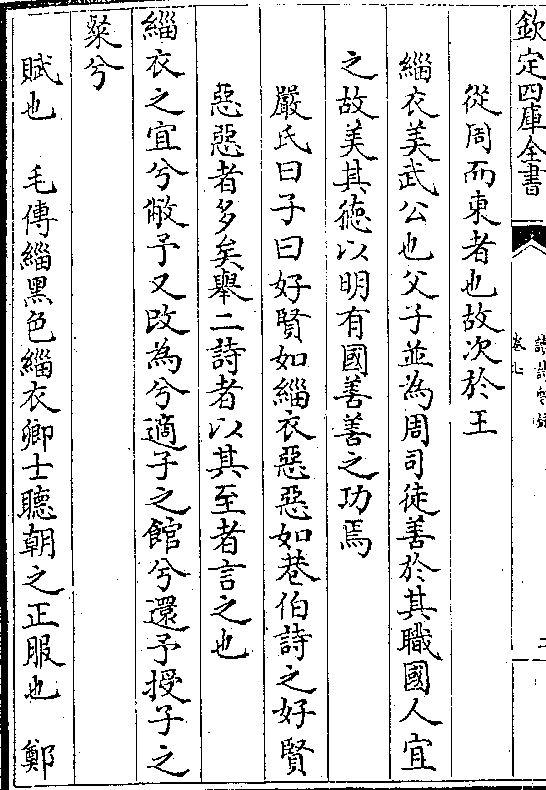 欽定四庫全書
卷七
從周而東者也故次於王
緇衣美武公也父子並為周司徒善於其職國人宜
之故美其德以明有國善善之功焉
嚴氏曰子曰好賢如緇衣惡惡如巷伯詩之好賢
惡惡者多矣舉二詩者以其至者言之也
緇衣之宜兮敝予又改為兮適子之館兮還予授子之
粲兮
賦也　毛傳緇黑色緇衣卿士聽朝之正服也　鄭